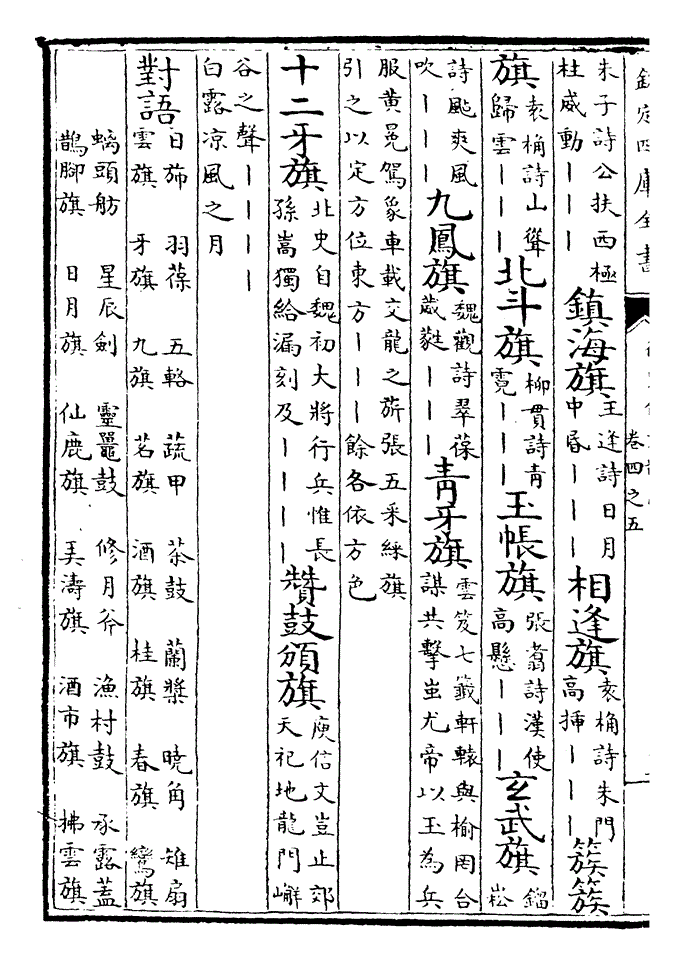 欽定四庫全書
卷四之五
朱子詩公扶西極
柱威動｜｜｜
鎮海旗
王逢詩日月
中昏｜｜｜
相逢旗
袁桷詩朱門
高挿｜｜｜
簇簇
旗
袁桷詩山聳
歸雲｜｜｜
北斗旗
柳貫詩青
霓｜｜｜
玉帳旗
張翥詩漢使
高懸｜｜｜
玄武旗
鎦
崧
詩颭爽風
吹｜｜｜
九鳳旗
魏觀詩翠葆
葳蕤｜｜｜
青牙旗
雲笈七籤軒轅與榆罔合
謀共擊蚩尤帝以玉為兵
服黄冕駕象車載交龍之旂張五采綵旗
引之以定方位東方｜｜｜餘各依方色
十二牙旗
北史自魏初大將行兵惟長
孫嵩獨給漏刻及｜｜｜｜
贊鼓頒旗
庾信文豈止郊
天祀地龍門嶰
谷之聲｜｜｜｜
白露凉風之月
對語
日斾 羽葆 五輅 蔬甲 茶鼓 蘭槳 曉角 雉扇
雲旗 牙旗 九旗 茗旗 酒旗 桂旗 春旗 鸞旗
螭頭舫 星辰劍 靈鼉鼓 修月斧 漁村鼓 承露蓋
鵲脚旗 日月旗 仙鹿旗 弄濤旗 酒市旗 拂雲旗